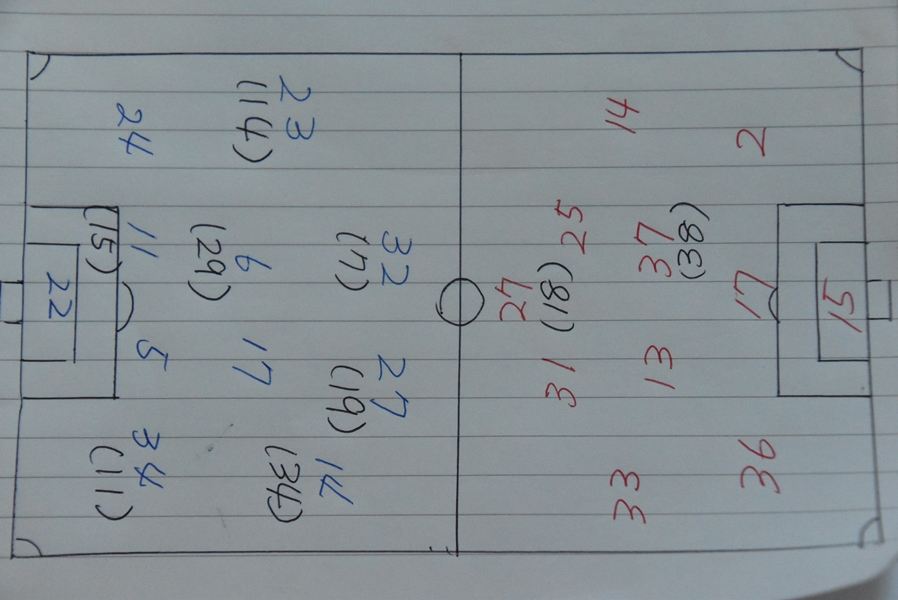 23
(14)
24
32
(7)
6
(29)
11
(15)
22
5
17
27
(19)
14
(34)
34
(11)
14
2
25
37
(38)
27
(18)
17
15
31
13
33
36